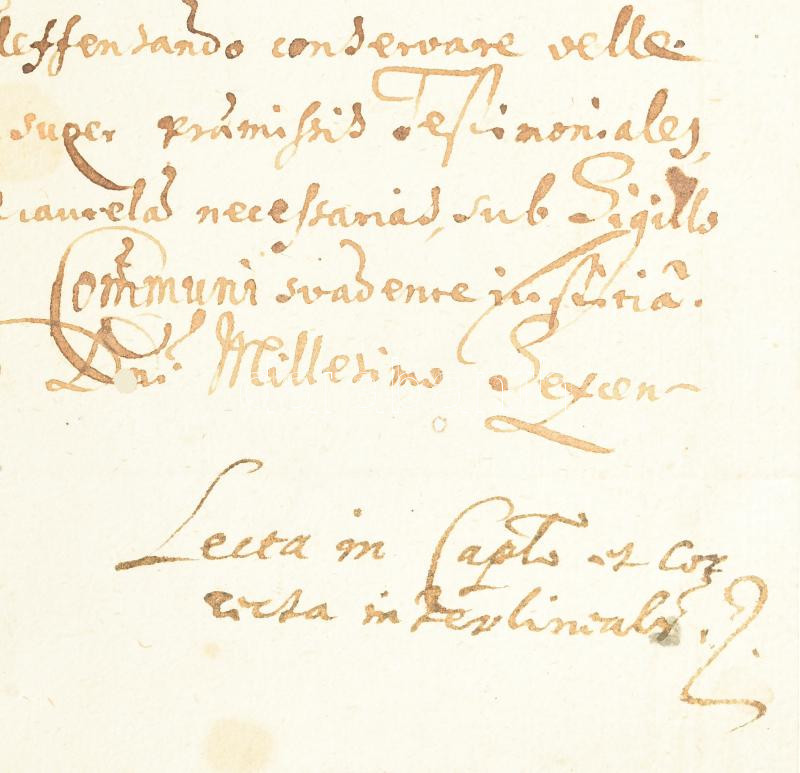 deffensando conservare velle.
super præmissis Testimoniales,
cautelas necessarias, sub Sigillo
Communi suadente justitiâ.
Dni. Millesimo Sexcen-
Lecta in Caplo et Cor
recta interlinealr.